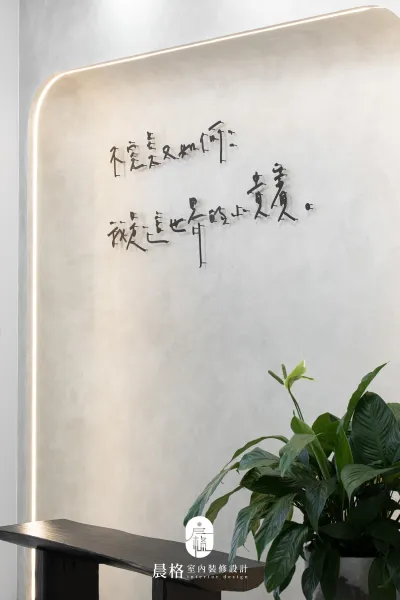 不完美又如何
這世界的小
晨格 室內裝修設計
interior design